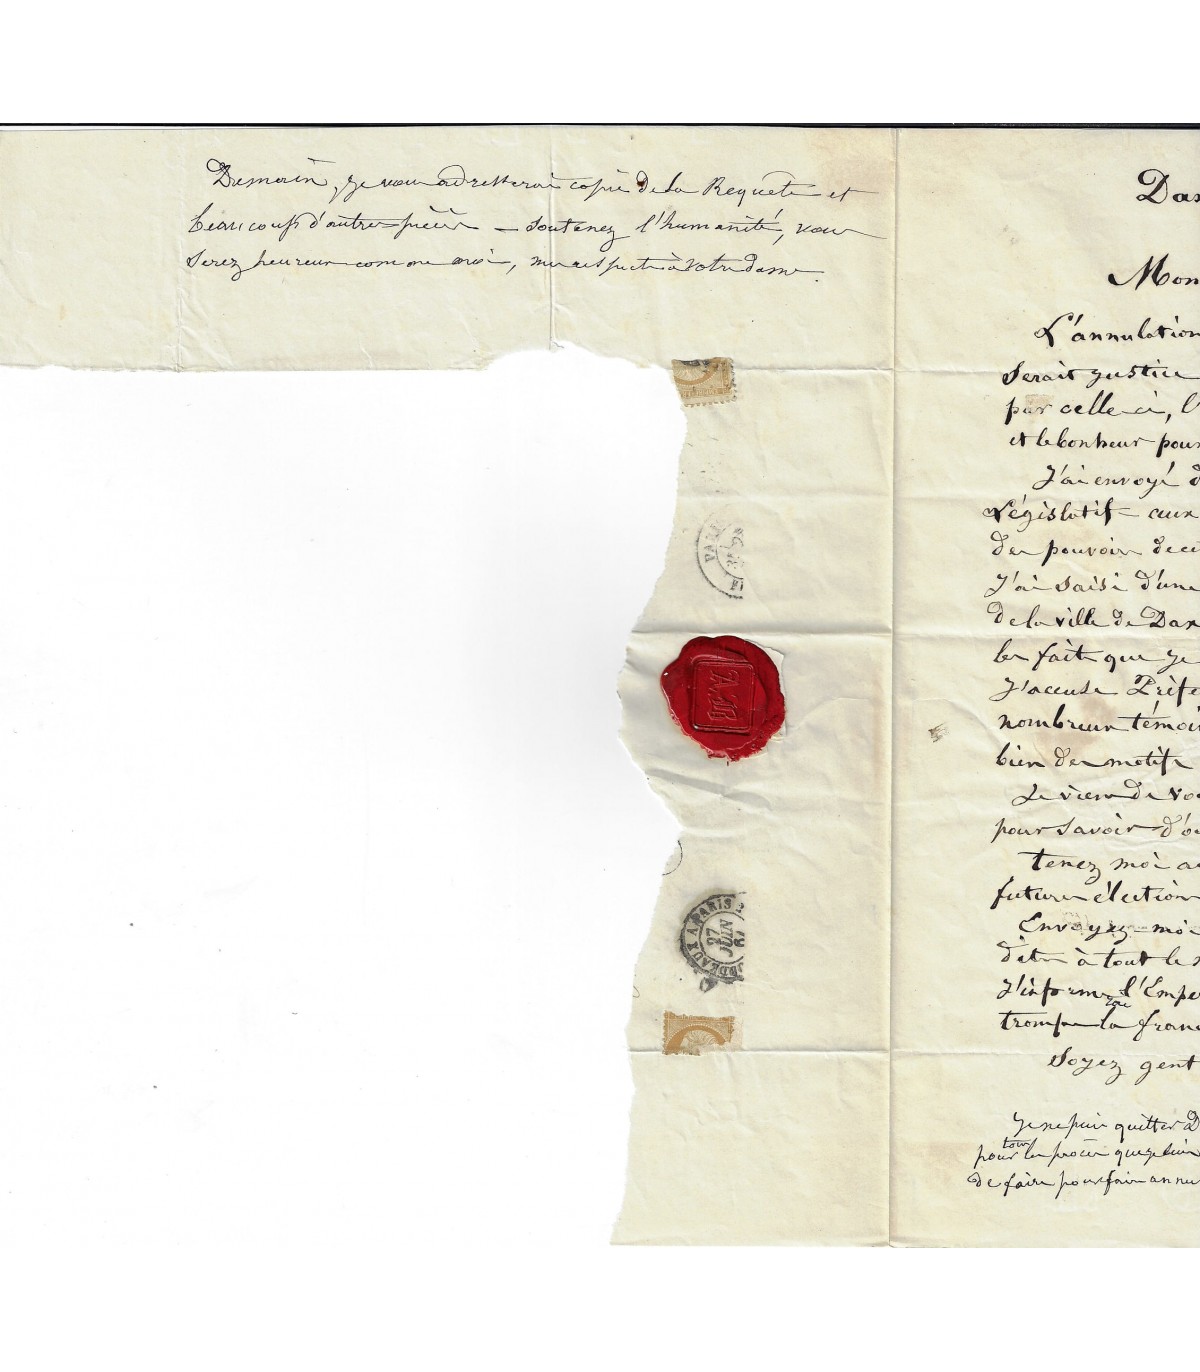 Demain, je vous adresserai copie de la Requête et
beaucoup d'autres pièces — soutenez l'humanité, vous
serez heureux comme moi, mes respects à votre dame.
PARIS
BORDEAUX A PARIS
27
JUIN
67
Dax
Mon
L'annulation
Serait justice
par celle ci, l'
et le bonheur pour
J'ai envoyé d
Législatif aux
des pouvoirs
J'ai saisi d'une
de la ville de Dax
les faits que je
J'accuse Préfe
nombreux témoi
bien des motifs
Je viens de vo
pour savoir d'o
tenez moi a
futures élection
Envoyez-moi
à tout le
J'informe l'Empe
trompe la Franc
Soyez gent
Je ne puis quitter D
tous
pour les procès que je
de faire pour faire annu